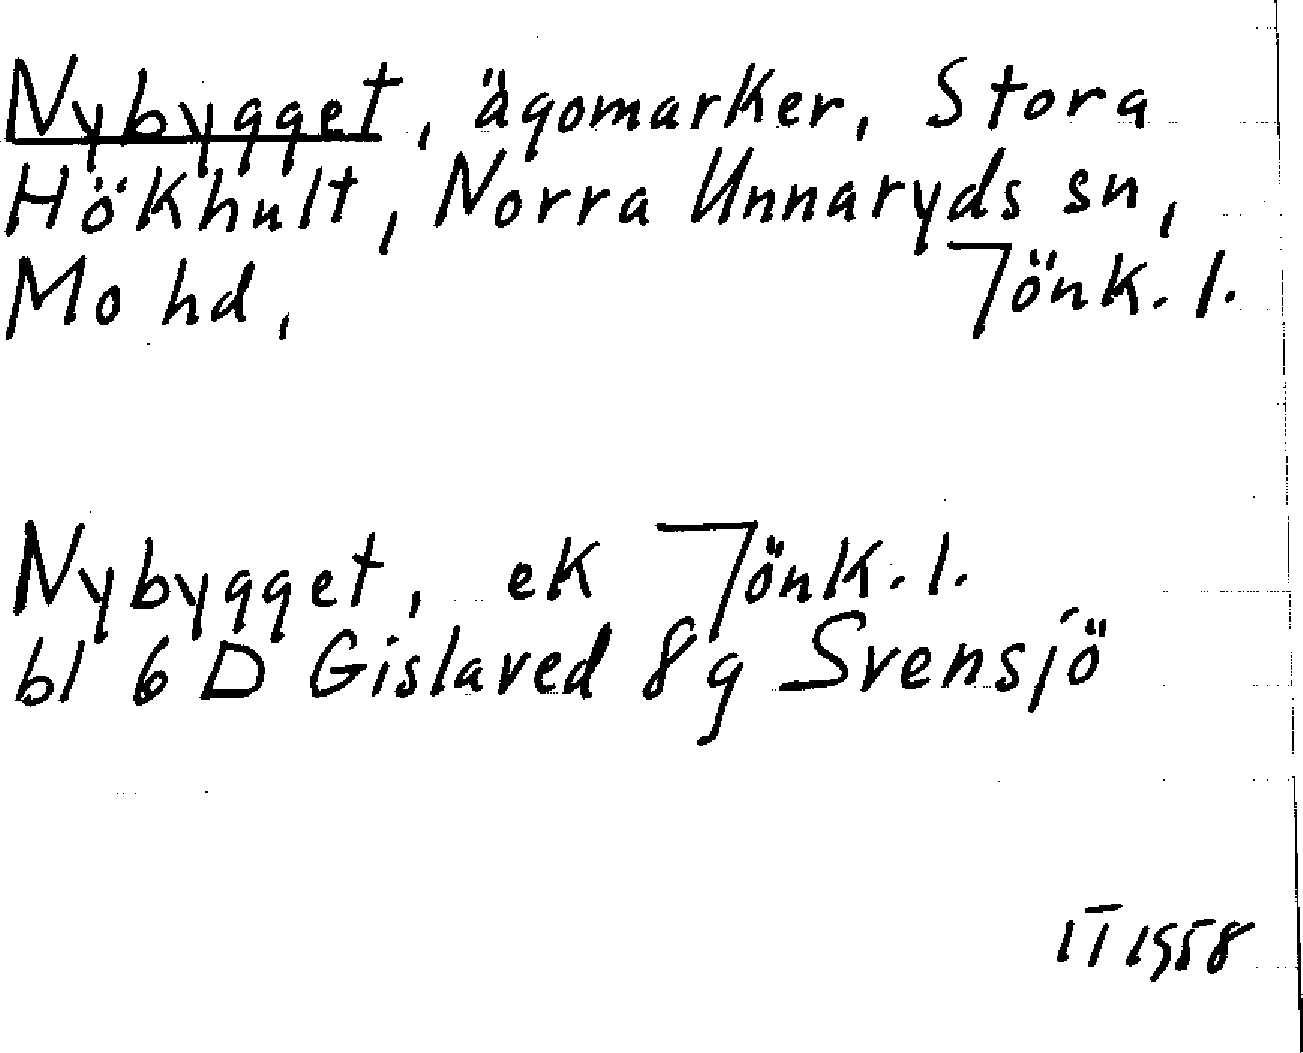 Nybygget, ägomarker, Stora
Hökhult, Norra Unnaryds sn,
Mo hd, Jönk. l.
Nybygget, ek Jönk. l.
bl 6 D Gislaved 8g Svensjö
1958